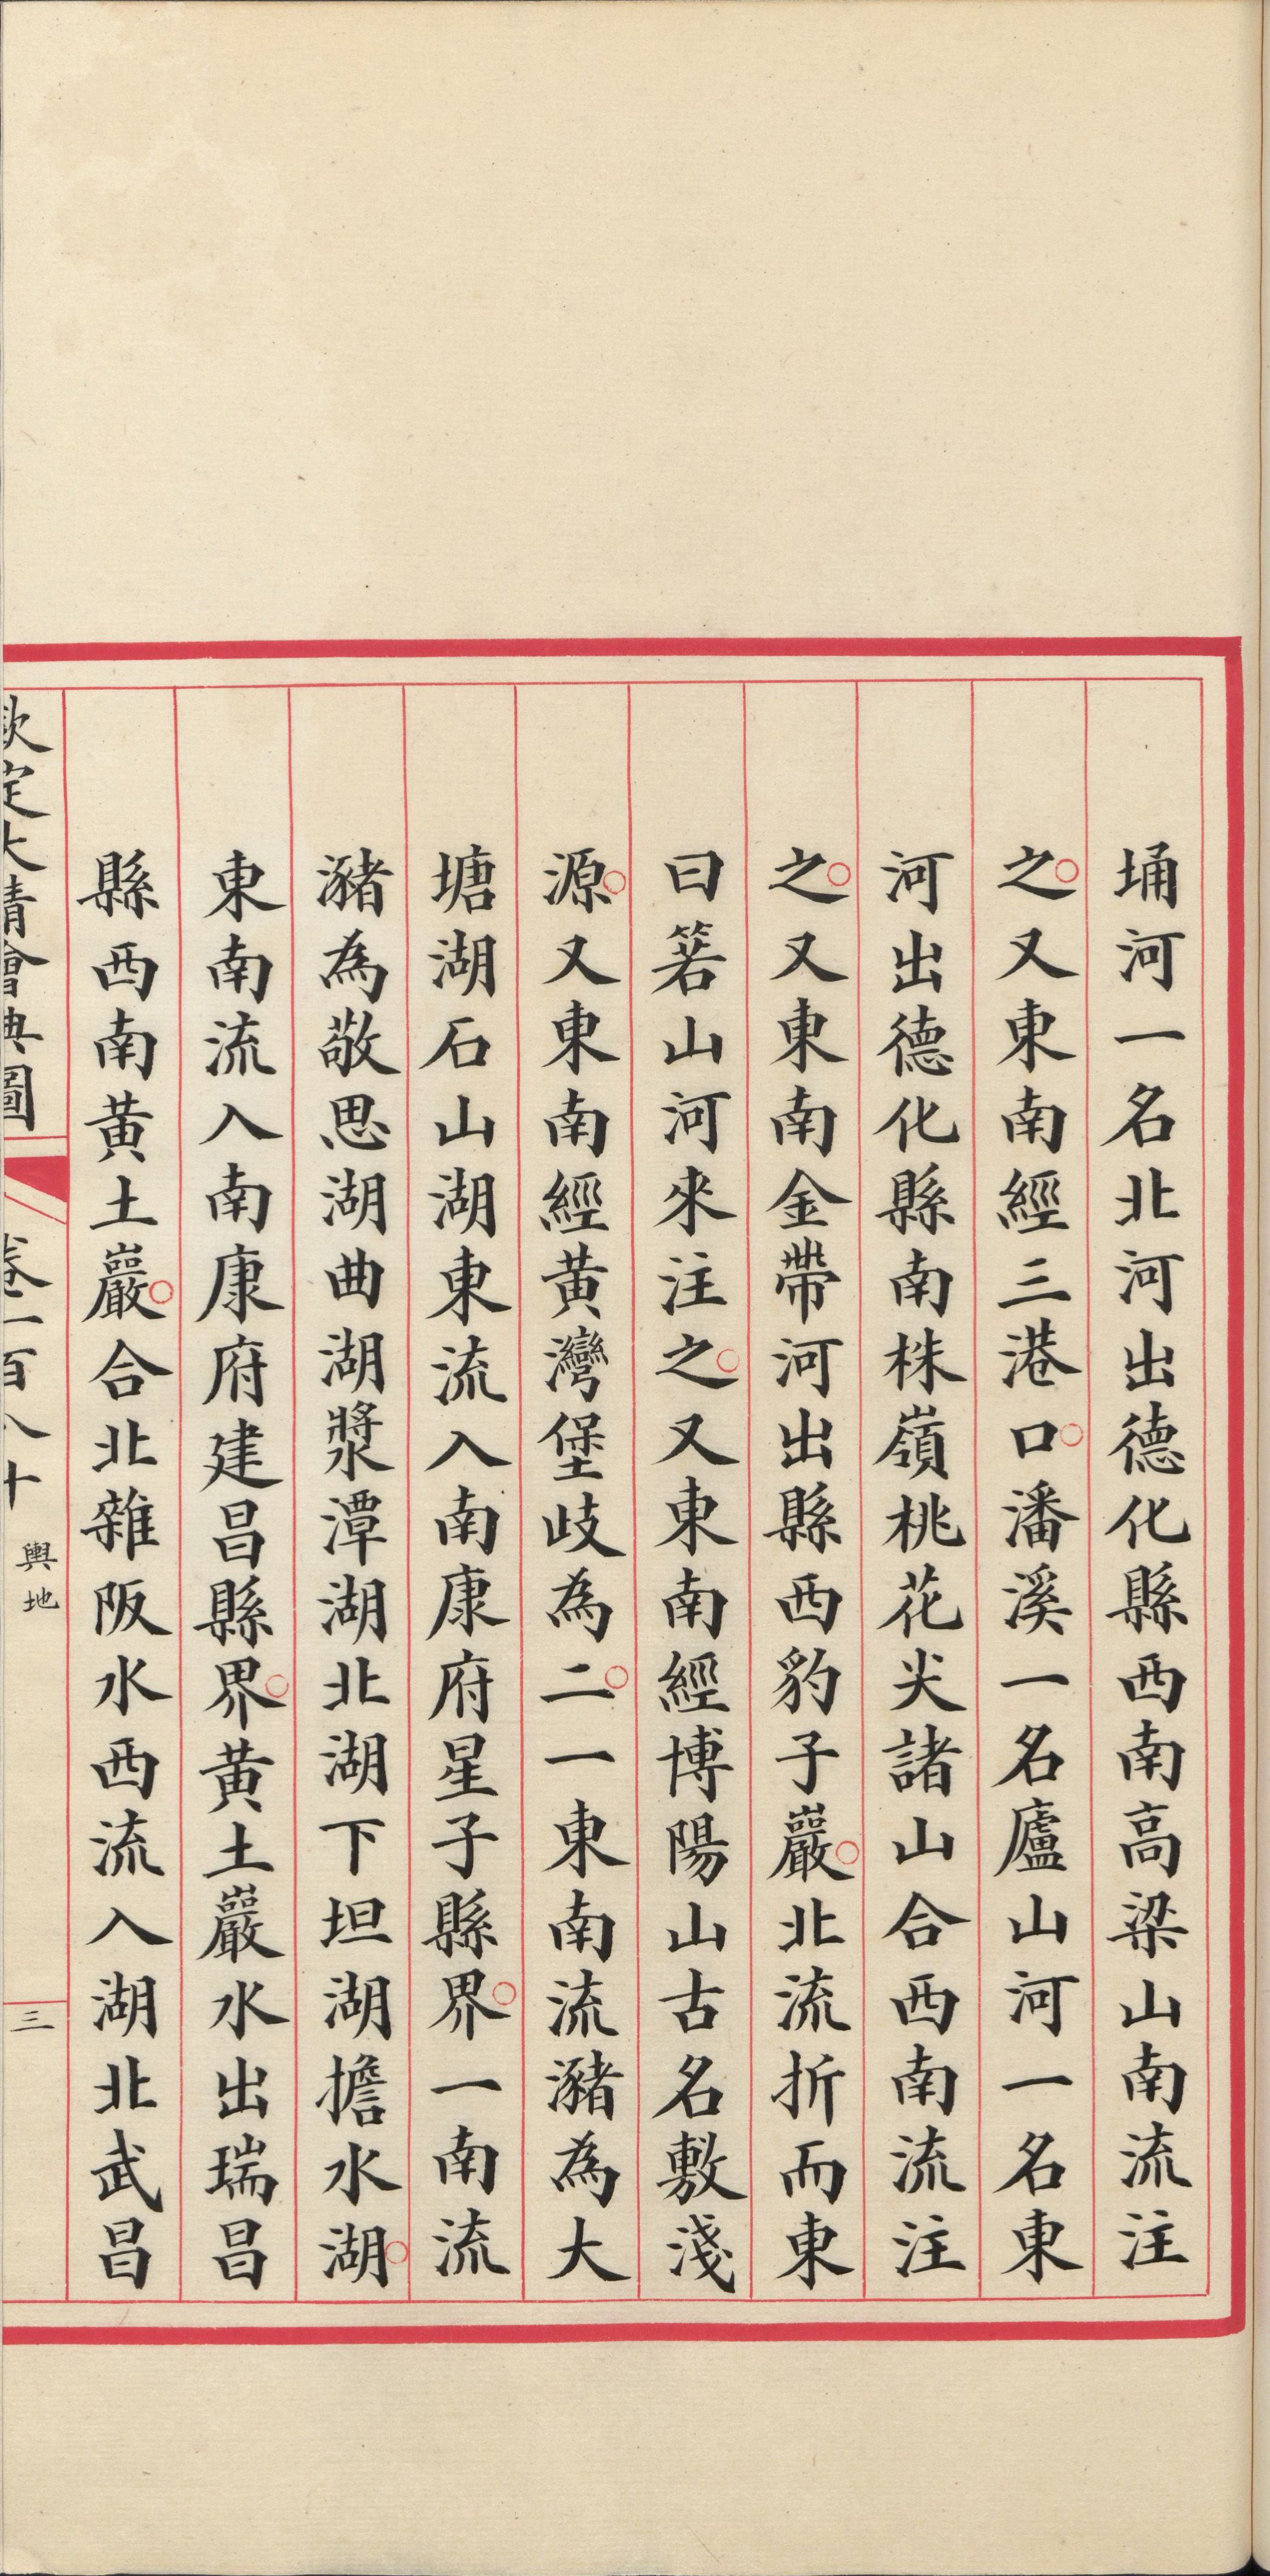 埇河一名北河出德化縣西南高梁山南流注
之○又東南經三港口○潘溪一名廬山河一名東
河出德化縣南株嶺桃花尖諸山合西南流注
之○又東南金帶河出縣西豹子巖○北流折而東
曰箬山河來注之○又東南經博陽山古名敷淺
源○又東南經黃灣堡歧為二○一東南流瀦為大
塘湖石山湖東流入南康府星子縣界○一南流
瀦為敬思湖曲湖漿潭湖北湖下坦湖擔水湖○
東南流入南康府建昌縣界○黃土巖水出瑞昌
縣西南黃土巖○合北雜阪水西流入湖北武昌
欽定大清會典圖
卷一百八十
輿地
三